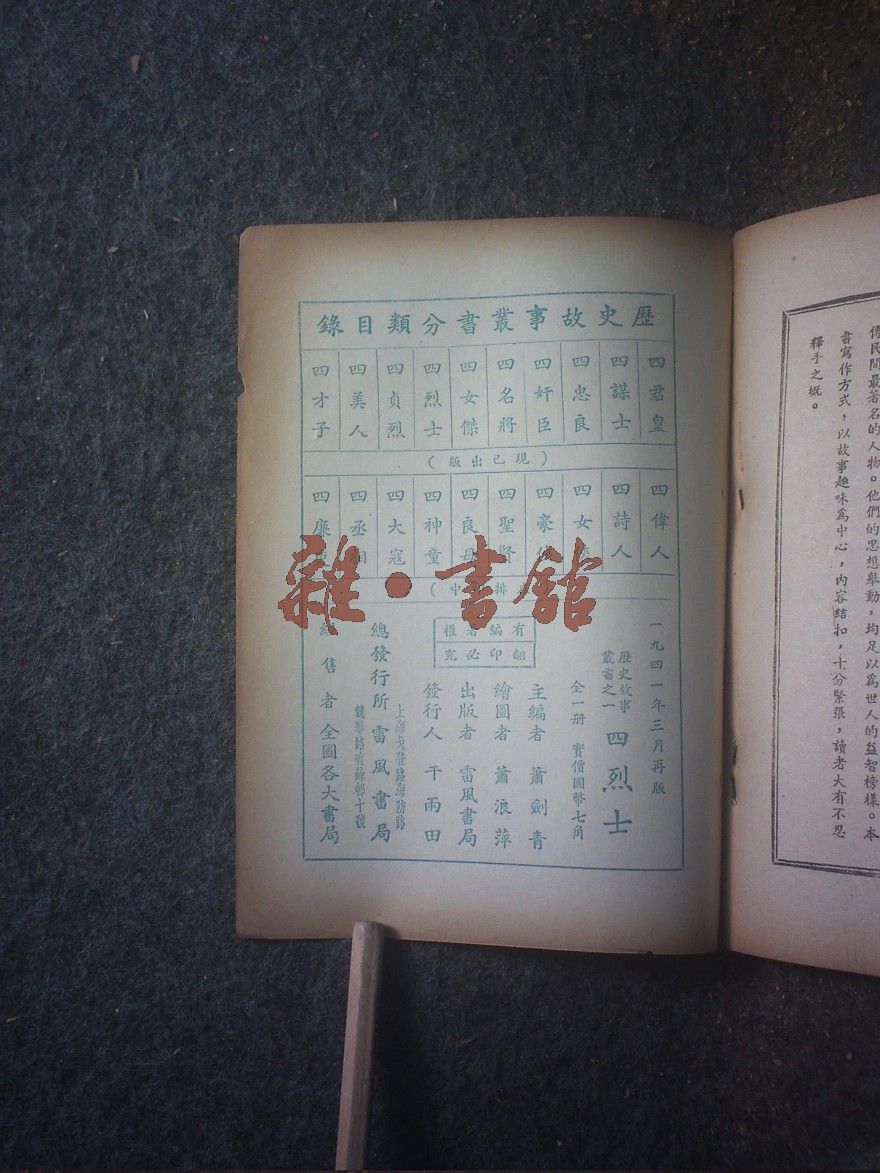 傳民間最著名的人物。他們的思想舉動，均足以為世人的益智榜樣。本
書寫作方式，以故事趣味為中心，內容結扣，十分緊張，讀者大有不忍
釋手之慨。
歷史故事叢書分類目錄
四君皇
四謀士
四忠良
四奸臣
四名將
四女傑
四烈士
四貞烈
四美人
四才子
（現已出版）
四偉人
四詩人
四女
四豪
四聖賢
四良母
四神童
四大寇
四丞相
四廉
排 中
雜·書館
一九四一年三月再版
歷史故事
叢書之一
四烈士
全一册 實價國幣七角
有編著權
翻印必究
主編者 蕭劍青
繪圖者 蕭浪萍
出版者 雷風書局
發行人 干雨田
上海戈登路海防路
總發行所 雷風書局
競華路有餘邨十號
經售者 全國各大書局